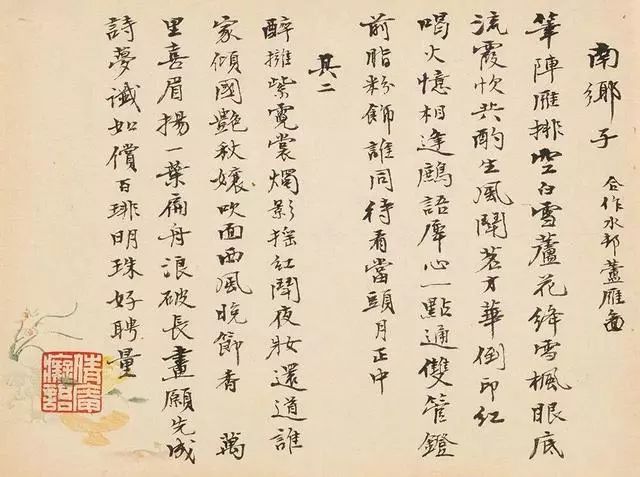 南鄉子 合作水邨蘆雁圖
筆陣雁排空白雪蘆花絳雪楓眼底
流霞快共酌生風鬪茗才華倒印紅
喝火憶相逢鸚語犀心一點通雙管鐙
前脂粉飾誰同待看當頭月正中
其二
醉擁紫霓裳燭影搖紅鬪夜妝還道誰
家傾國艷秋孃吹面西風晚節香 萬
里喜眉揚一葉扁舟浪破長畫願先成
詩夢讖如償百琲明珠好聘量